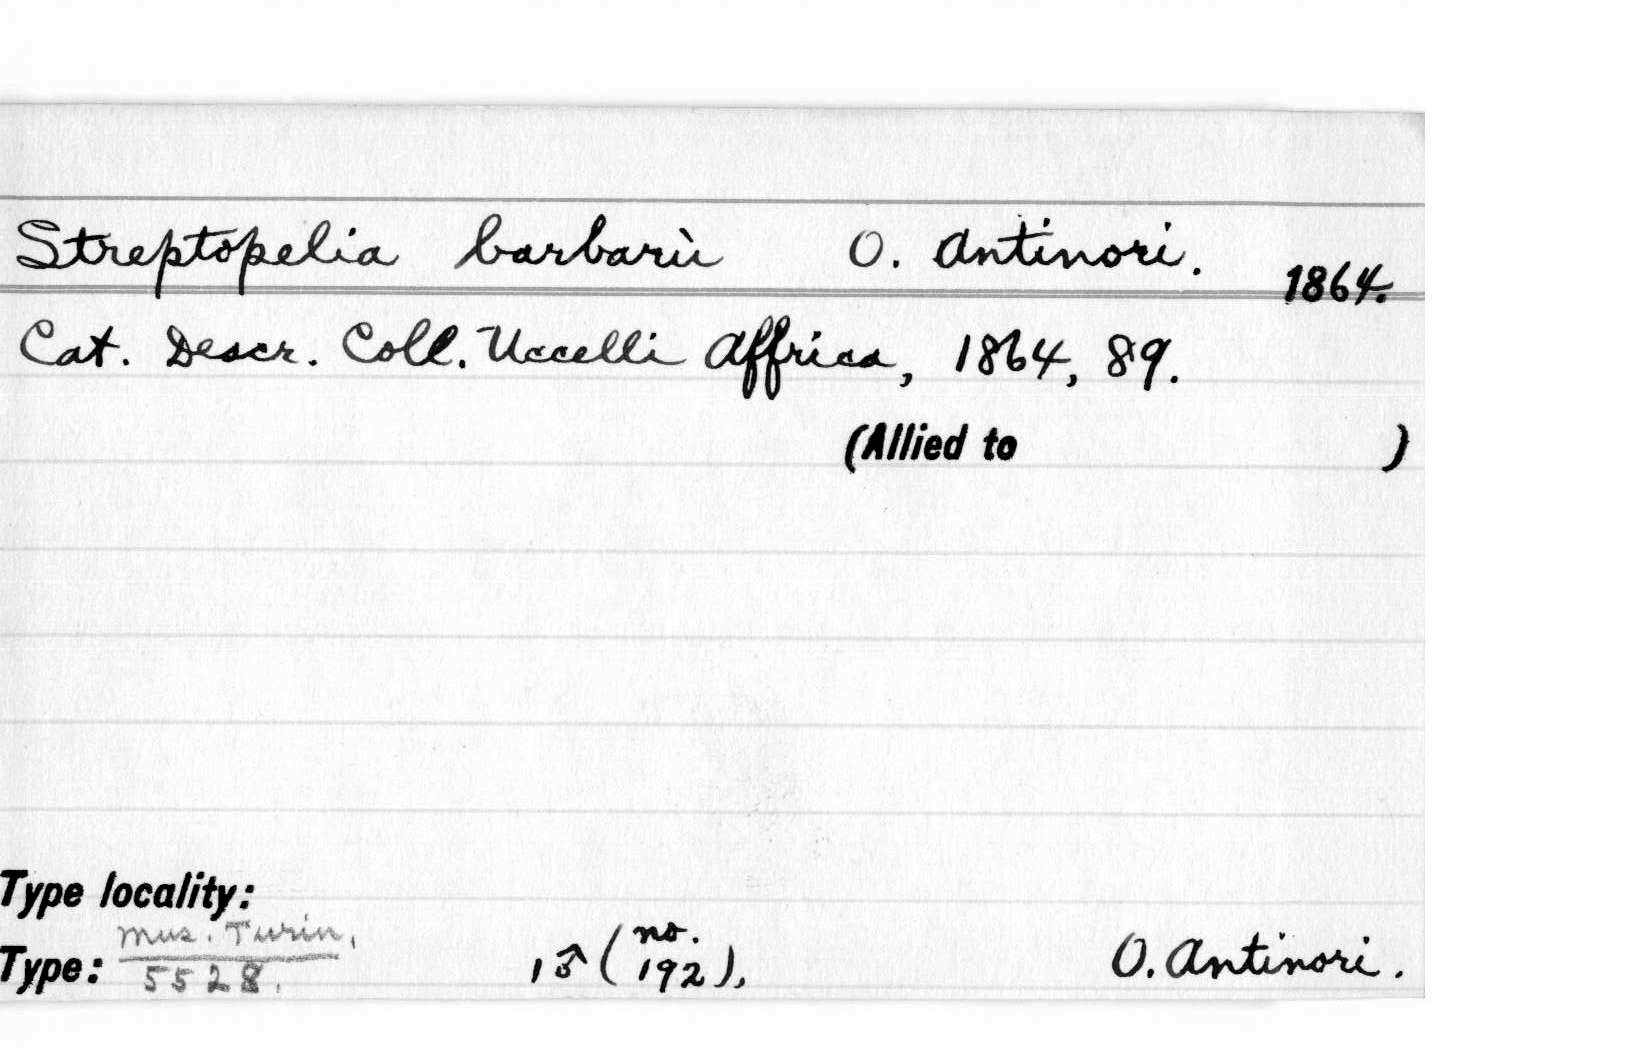 Streptopelia barbaru O. Antinori. 1864.
Cat. Descr. Coll. Uccelli Affrica, 1864, 89.
(Allied to )
Type locality:
Type: Mus. Turin, 5528. 1♂ (no. 192), O. Antinori.